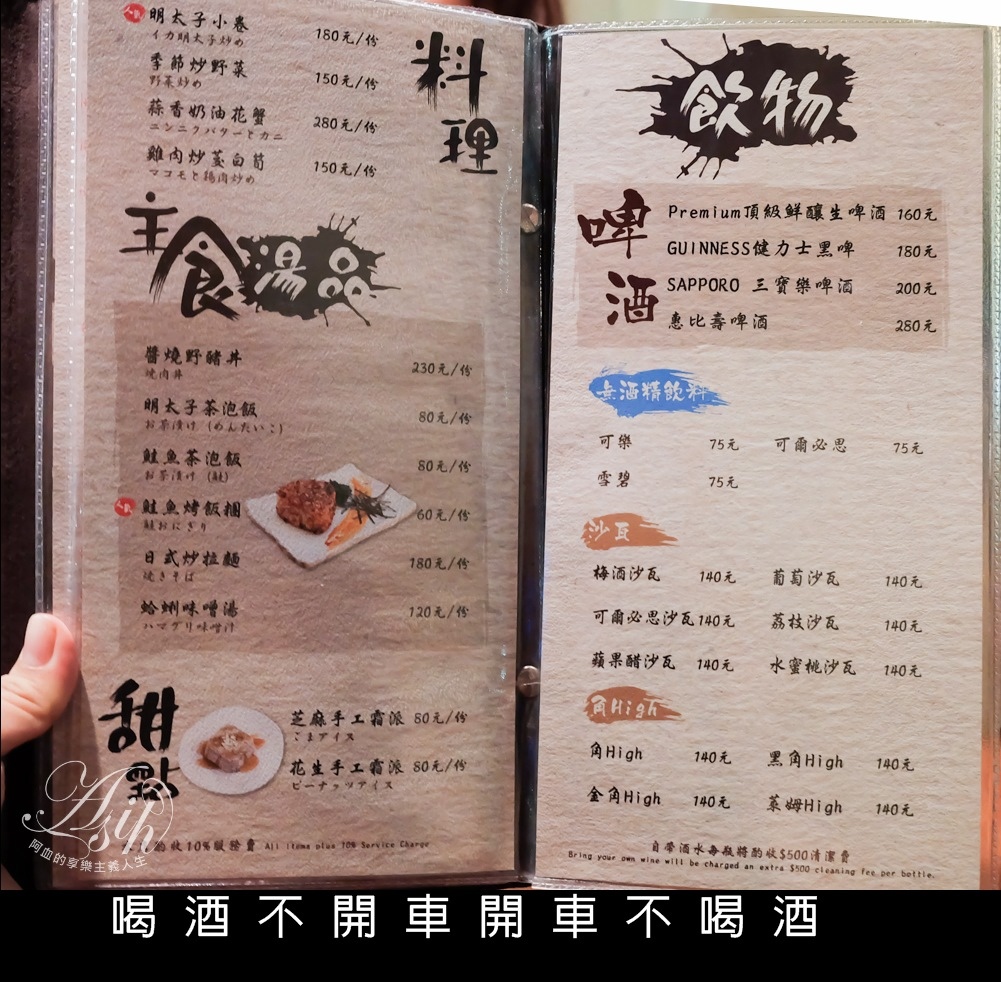 人氣
明太子小卷 180元/份
イカ明太子炒め
季節炒野菜 150元/份
野菜炒め
蒜香奶油花蟹 280元/份
ニンニクバターとカニ
雞肉炒茭白筍 150元/份
マコモと鶏肉炒め
料理
主食湯品
醬燒野豬丼 230元/份
焼肉丼
明太子茶泡飯 80元/份
お茶漬け (めんたいこ)
鮭魚茶泡飯 80元/份
お茶漬け (鮭)
人氣
鮭魚烤飯糰 60元/份
鮭おにぎり
日式炒拉麵 180元/份
焼きそば
蛤蜊味噌湯 120元/份
ハマグリ味噌汁
甜點
芝麻手工霜派 80元/份
ごまアイス
花生手工霜派 80元/份
ピーナッツアイス
酌收10%服務費 All items plus 10% Service Charge
Asih
阿血的享樂主義人生
飲物
啤酒
Premium頂級鮮釀生啤酒 160元
GUINNESS健力士黑啤 180元
SAPPORO 三寶樂啤酒 200元
惠比壽啤酒 280元
無酒精飲料
可樂 75元 可爾必思 75元
雪碧 75元
沙瓦
梅酒沙瓦 140元 葡萄沙瓦 140元
可爾必思沙瓦 140元 荔枝沙瓦 140元
蘋果醋沙瓦 140元 水蜜桃沙瓦 140元
角High
角High 140元 黑角High 140元
金角High 140元 萊姆High 140元
自帶酒水每瓶將酌收$500清潔費
Bring your own wine will be charged an extra $500 cleaning fee per bottle.
喝酒不開車開車不喝酒